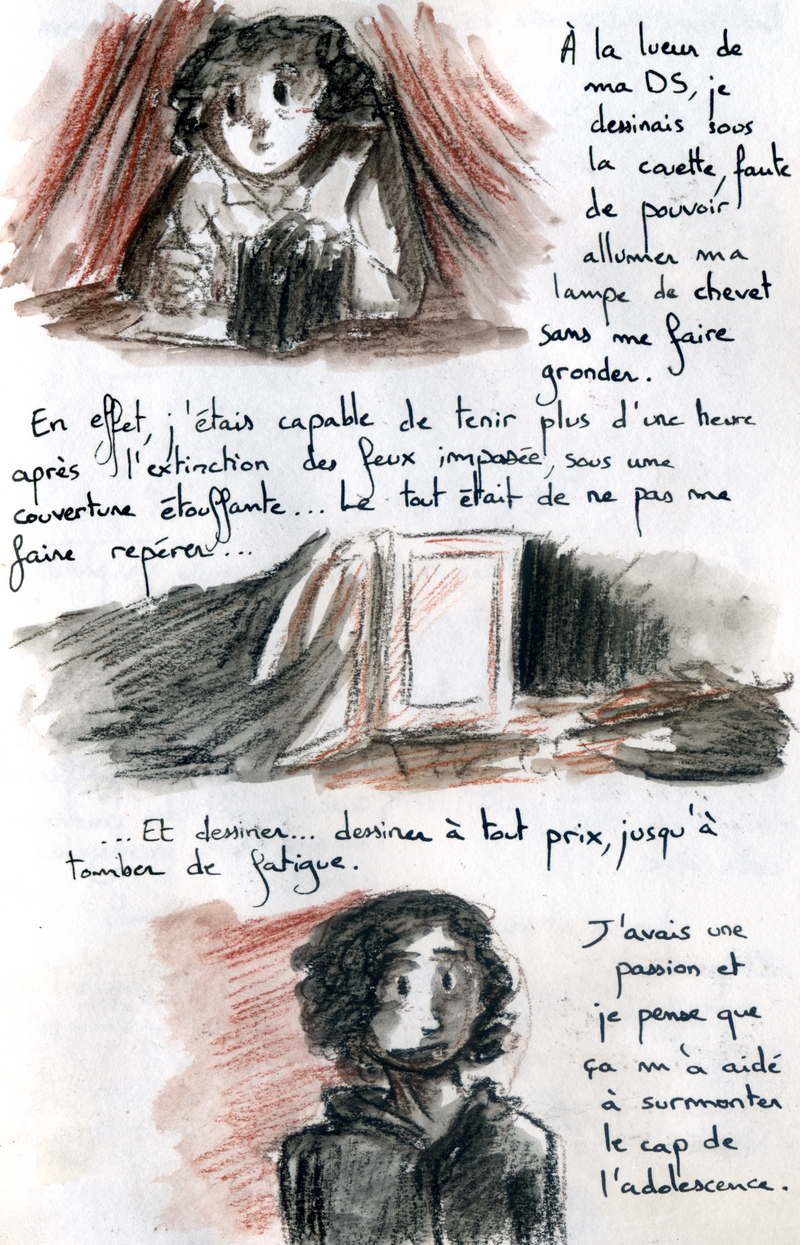 À la lueur de
ma DS, je
dessinais sous
la couette, faute
de pouvoir
allumer ma
lampe de chevet
sans me faire
gronder.
En effet, j'étais capable de tenir plus d'une heure
après l'extinction des feux imposée, sous une
couverture étouffante... Le tout était de ne pas me
faire repérer...
...Et dessiner... dessiner à tout prix, jusqu'à
tomber de fatigue.
J'avais une
passion et
je pense que
ça m'a aidé
à surmonter
le cap de
l'adolescence.